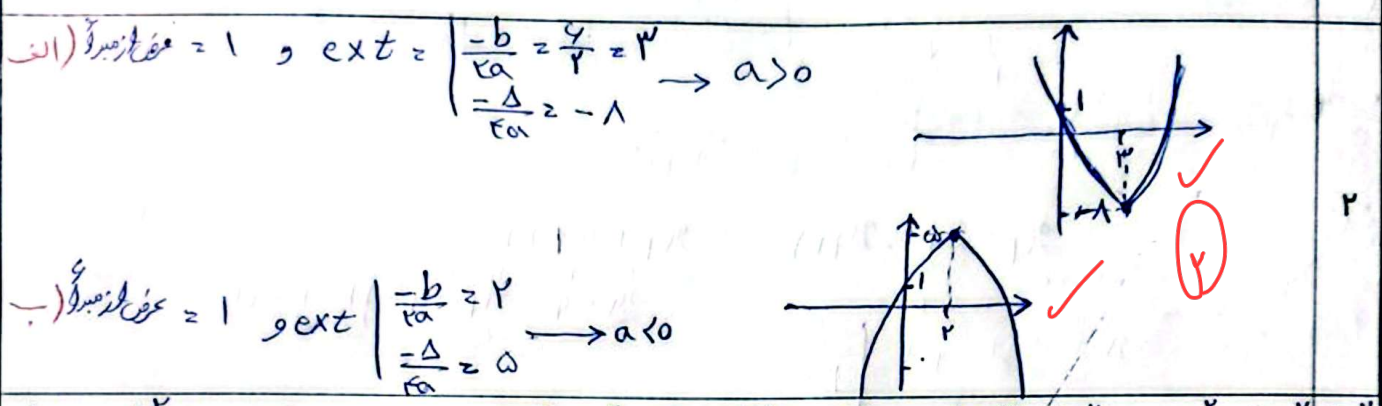 الف) عرض از مبدأ = ۱ و ext = | -b/۲a = ۶/۲ = ۳ → a>0
-Δ/۴a = -۸
۱
۳
-۸
۲
۲
ب) عرض از مبدأ = ۱ و ext | -b/۲a = ۲ → a<0
-Δ/۴a = ۵
۵
۱
۲